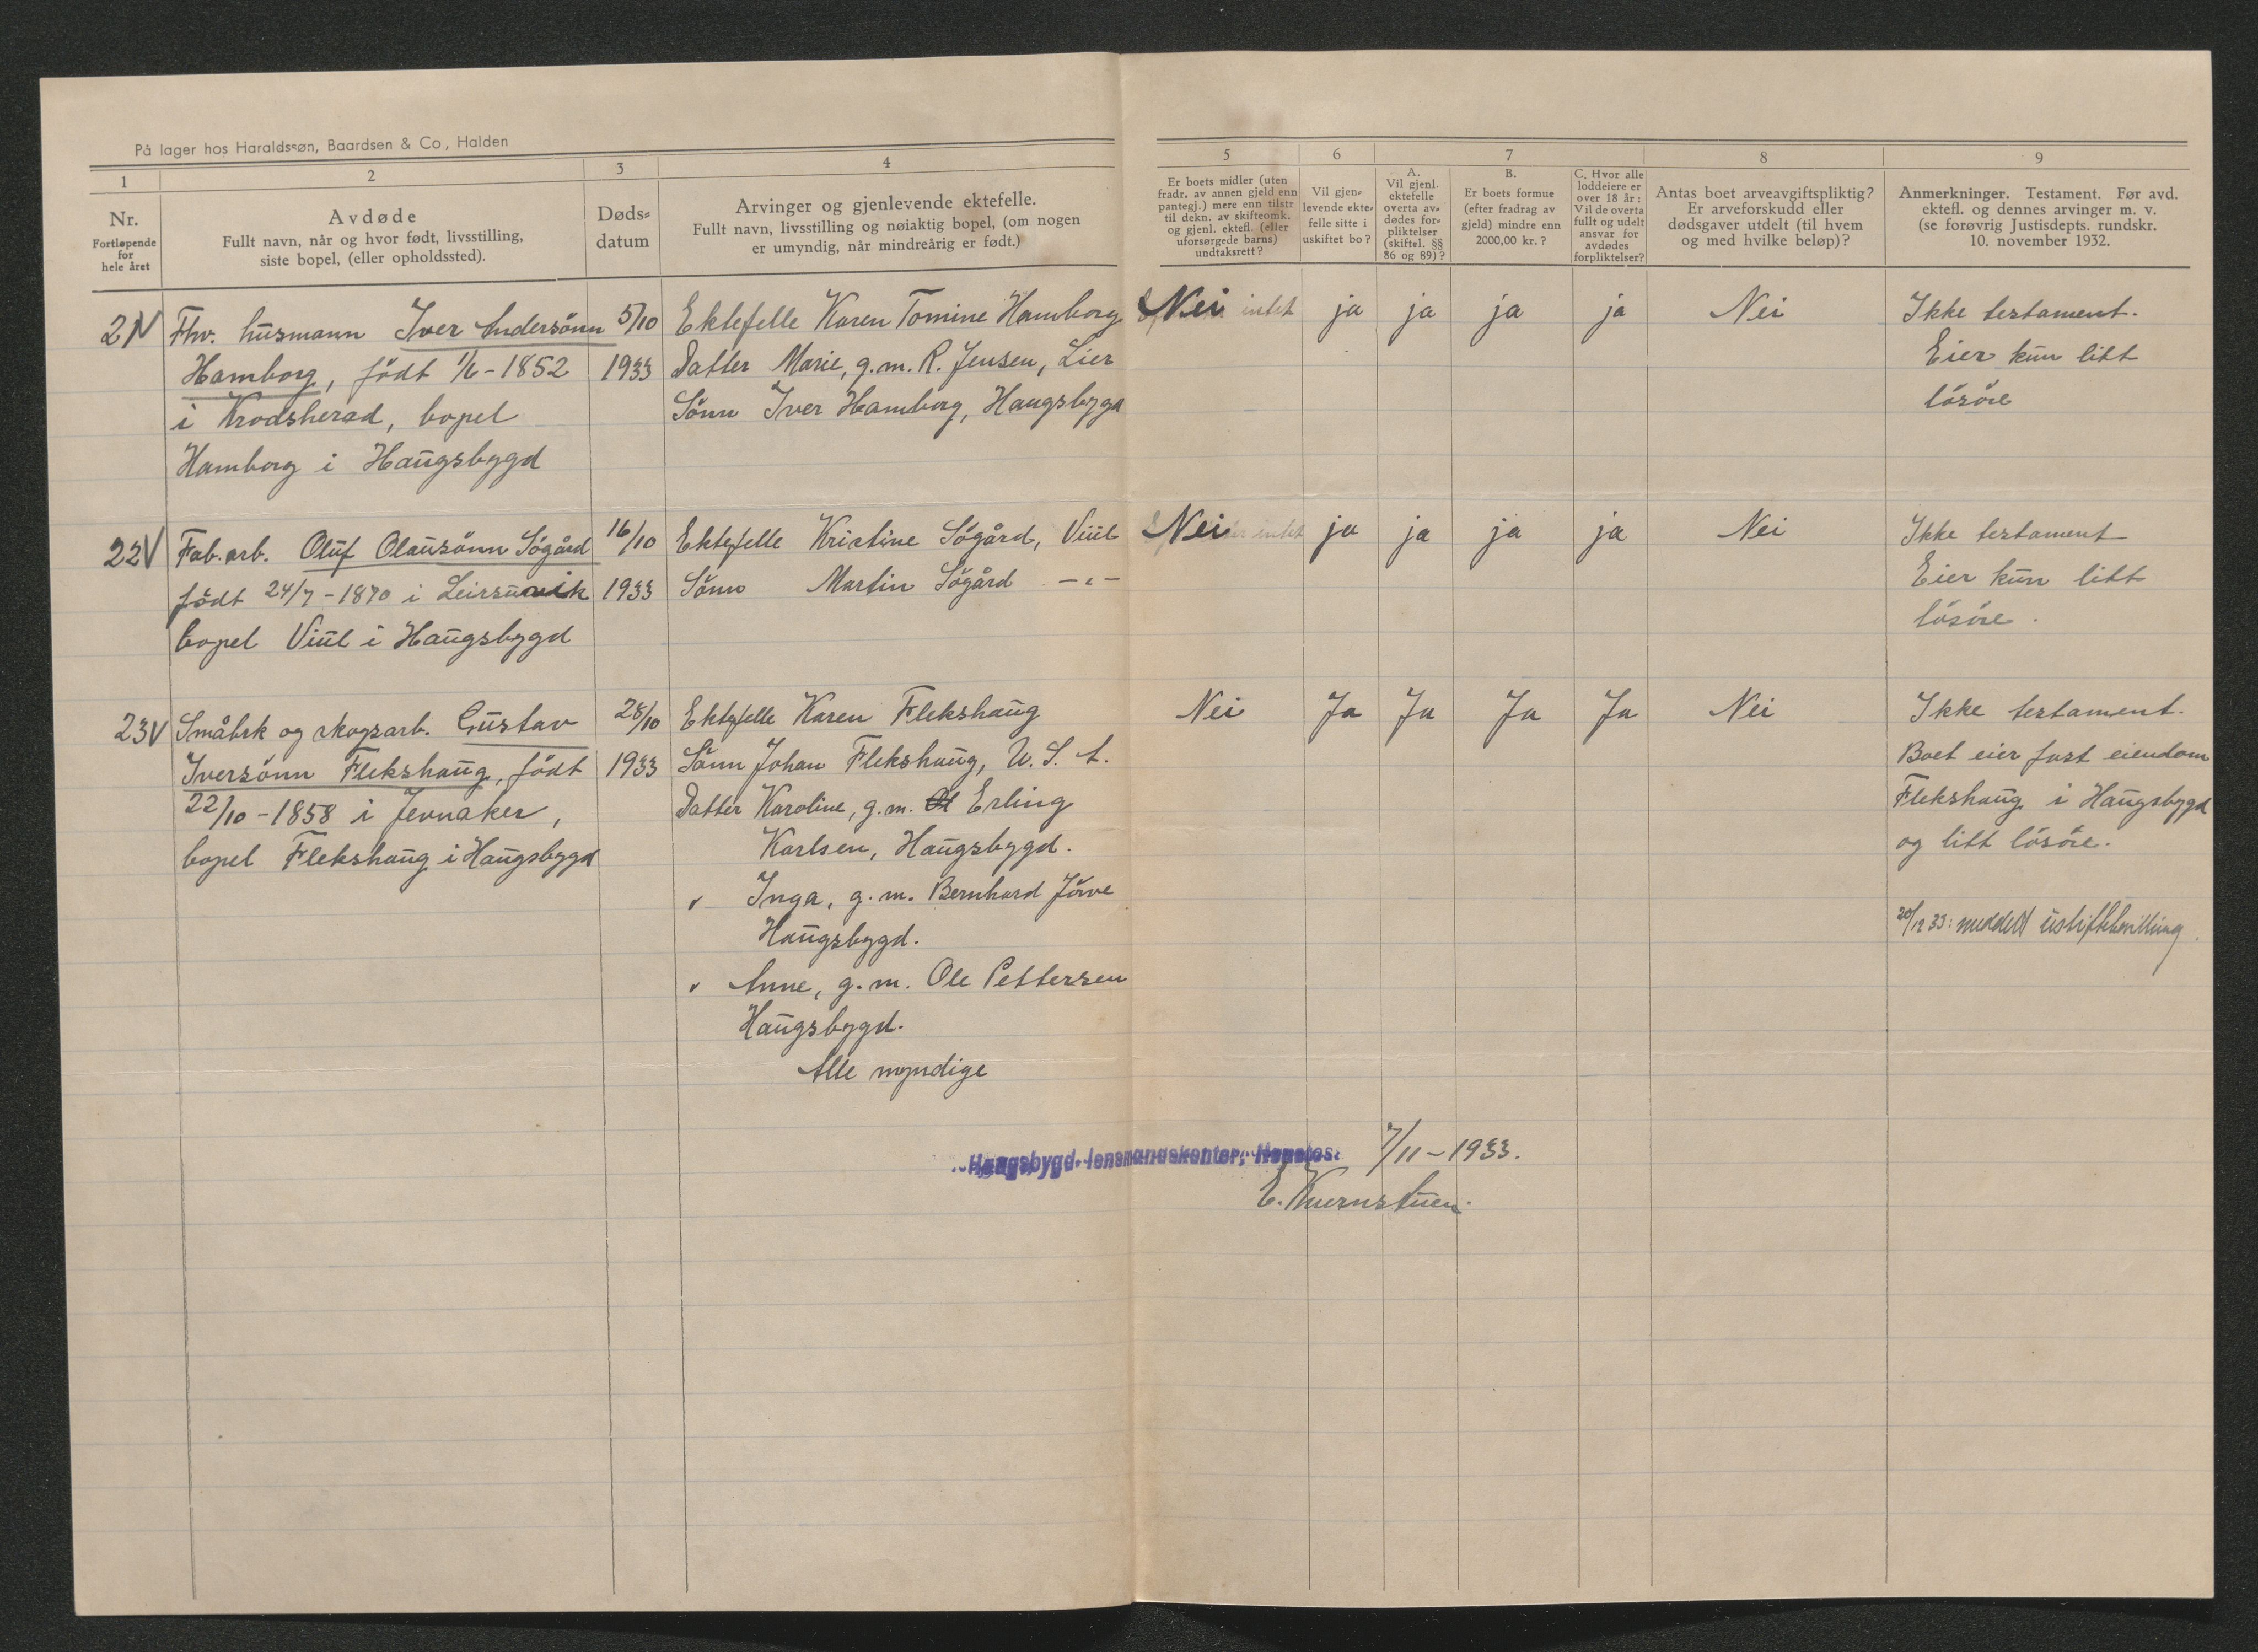 På lager hos Haraldssøn, Baardsen & Co, Halden
1
2
3
4
5
6
7
8
9
Nr.
Fortløpende
for
hele året
Avdøde
Fullt navn, når og hvor født, livsstilling,
siste bopel, (eller opholdssted).
Døds-
datum
Arvinger og gjenlevende ektefelle.
Fullt navn, livsstilling og nøiaktig bopel, (om nogen
er umyndig, når mindreårig er født.)
Er boets midler (uten
fradr. av annen gjeld enn
pantegj.) mere enn tilstr
til dekn. av skifteomk.
og gjenl. ektefl. (eller
uforsørgede barns)
undtaksrett?
Vil gjen-
levende ekte-
felle sitte i
uskiftet bo?
A.
Vil gjenl.
ektefelle
overta av-
dødes for-
pliktelser
(skiftel. §§
86 og 89)?
B.
Er boets formue
(efter fradrag av
gjeld) mindre enn
2000,00 kr.?
C. Hvor alle
loddeiere er
over 18 år:
Vil de overta
fullt og udelt
ansvar for
avdødes
forpliktelser?
Antas boet arveavgiftspliktig?
Er arveforskudd eller
dødsgaver utdelt (til hvem
og med hvilke beløp)?
Anmerkninger. Testament. Før avd.
ektefl. og dennes arvinger m. v.
(se forøvrig Justisdepts. rundskr.
10. november 1932.
21 V
Fhv. husmann Iver Andersønn
Hamborg, födt 1/6 - 1852
i Krodsherad, bopel
Hamborg i Haugsbygd
5/10
1933
Ektefelle Karen Tomine Hamborg
Datter Marie, g.m. R. Jensen, Lier
Sönn Iver Hamborg, Haugsbygd
Nei intet
ja
ja
ja
ja
Nei
Ikke testament.
Eier kun litt
lösöre
22 V
Fab.arb. Oluf Olausönn Sögård
födt 24/7 - 1870 i
bopel Viul i Haugsbygd
16/10
1933
Ektefelle Kristine Sögård, Viul
Sönn Martin Sögård -"-
Nei intet
ja
ja
ja
ja
Nei
Ikke testament
Eier kun litt
lösöre.
23 V
Småbrk og skogsarb. Gustav
Iversönn Flekshaug, födt
22/10 - 1858 i Jevnaker,
bopel Flekshaug i Haugsbygd
28/10
1933
Ektefelle Karen Flekshaug
Sönn Johan Flekshaug, U.S.A.
Datter Karoline, g.m. Erling
Karlsen, Haugsbygd.
" Inga, g.m. Bernhard Jörve
Haugsbygd.
" Anne, g.m. Ole Pettersen
Haugsbygd.
Alle myndige
Nei
Ja
Ja
Ja
Ja
Nei
Ikke testament.
Boet eier fast eiendom
Flekshaug i Haugsbygd
og litt lösöre.
20/12 33: meddelt uskiftebevilling.
Haugsbygd lensmannskontor, Hønefoss. 7/11 - 1933.